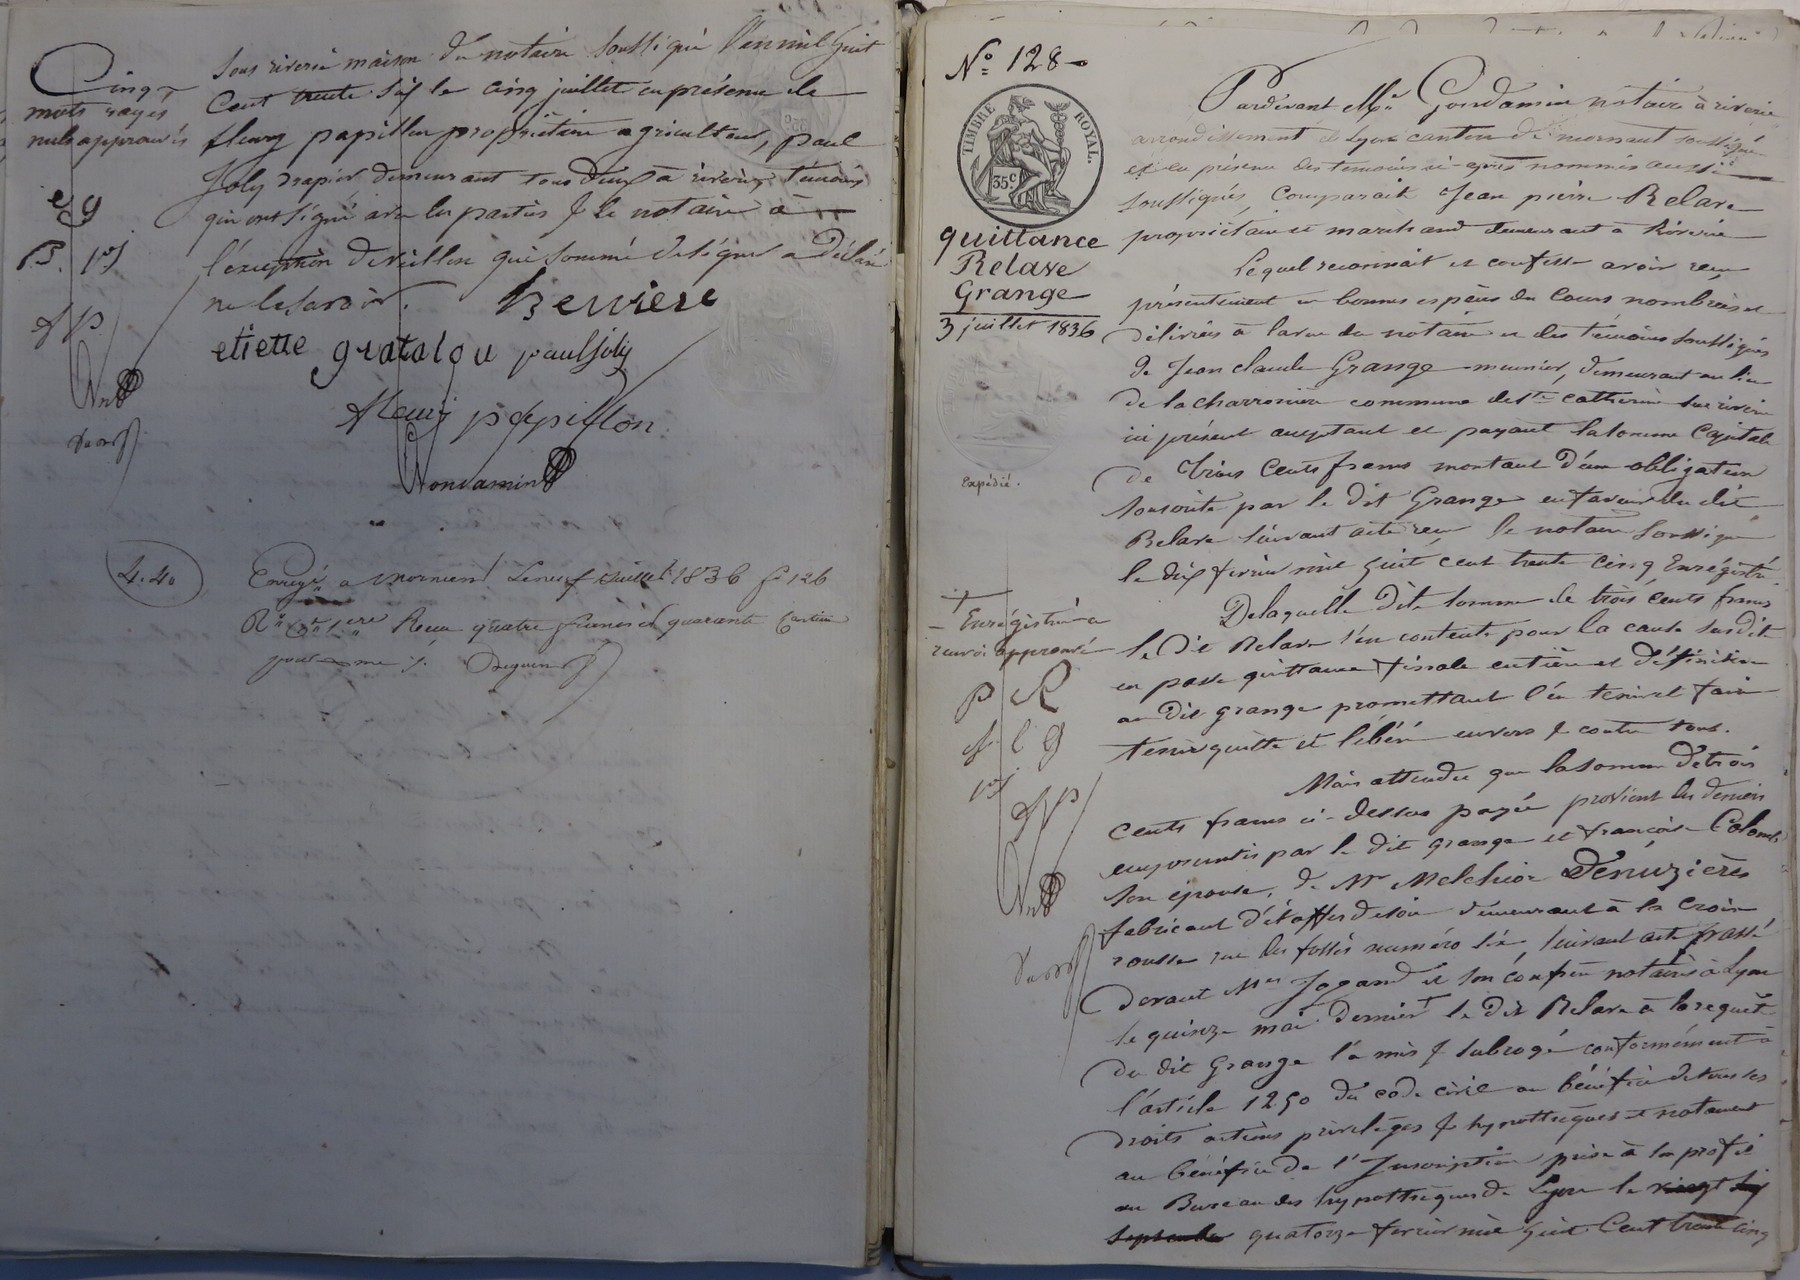 Cinq
mots rayés
nuls approuvés
e g
B. pj
f p
sous riverie maison du notaire soussigné l'an mil huit
cent trente six le cinq juillet en présence de
fleury papillon propriétaire agriculteur, paul
Joly drapier demeurant tous deux à riverie, témoins
qui ont signé avec les parties & le notaire à
l'exception de qui sommé de signer a déclaré
ne le savoir. Berriere
etiette gratalou paul joly
fleury papillon
Gondamin
4.40
Enregé à mornant le neuf Juillet 1836 fo 126
Ro Reçu quatre francs et quarante centimes
pour
No 128
TIMBRE ROYAL.
35c
quittance
Relave
Grange
3 juillet 1836
Expédié.
+ Enrégistré
renvoi approuvé
P R
J. C g
pj
f p
Pardevant Me Gondamin notaire à riverie
arrondissement de Lyon canton de mornant soussigné
et en présence des temoins ci-après nommés aussi
soussignés, Comparait Jean pierre Relave
propriétaire et marchand demeurant à Riverie
Lequel reconnait et confesse avoir reçu
présentement en bonnes espèces du Cours nombrées et
délivrées à la vue du notaire et des témoins soussignés
de Jean claude Grange meunier, demeurant au lieu
de la charronière commune de Ste catherine sur riverie
ici présent acceptant et payant la somme Capitale
de trois cents francs montant d'une obligation
souscrite par le dit Grange en faveur du dit
Relave suivant acte reçu le notaire soussigné
le dix fevrier mil huit cent trente cinq Enrégistré.
De laquelle dite somme de trois cents francs
le dit Relave s'en contente pour la cause susdite
en passe quittance finale entière et définitive
au dit grange promettant l'en tenir et faire
tenir quitte et libéré envers & contre tous.
Mais attendu que la somme de trois
cents francs ci-dessus payée provient des deniers
empruntés par le dit grange et françoise Colomb
son épouse, de Mr Melchior Dénuzières
fabricant d'étoffes de soie demeurant à la croix
rousse rue des fossés numéro six, suivant acte passé
devant Mes Jogand et son confrère notaires à Lyon
le quinze mai dernier + le dit Relave à la requête
du dit Grange l'a mis & subrogé conformément à
l'article 1250 du code civil au bénéfice de tous ses
droits actions privilèges & hypothèques et notament
au bénéfice de l'Inscription prise à son profit
au Bureau des hypothèques de Lyon le vingt six
septembre quatorze fevrier mil huit Cent trente cinq